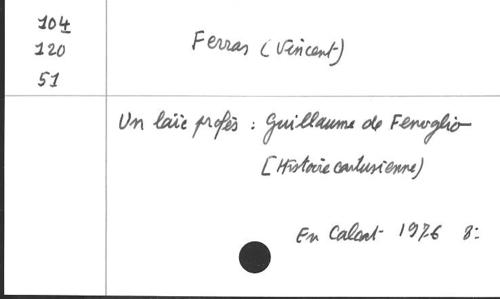 104
120
51
Ferras (Vincent)
Un laïc profès : Guillaume de Fenoglio
[Histoire cartusienne)
En Calcat 1976 8: